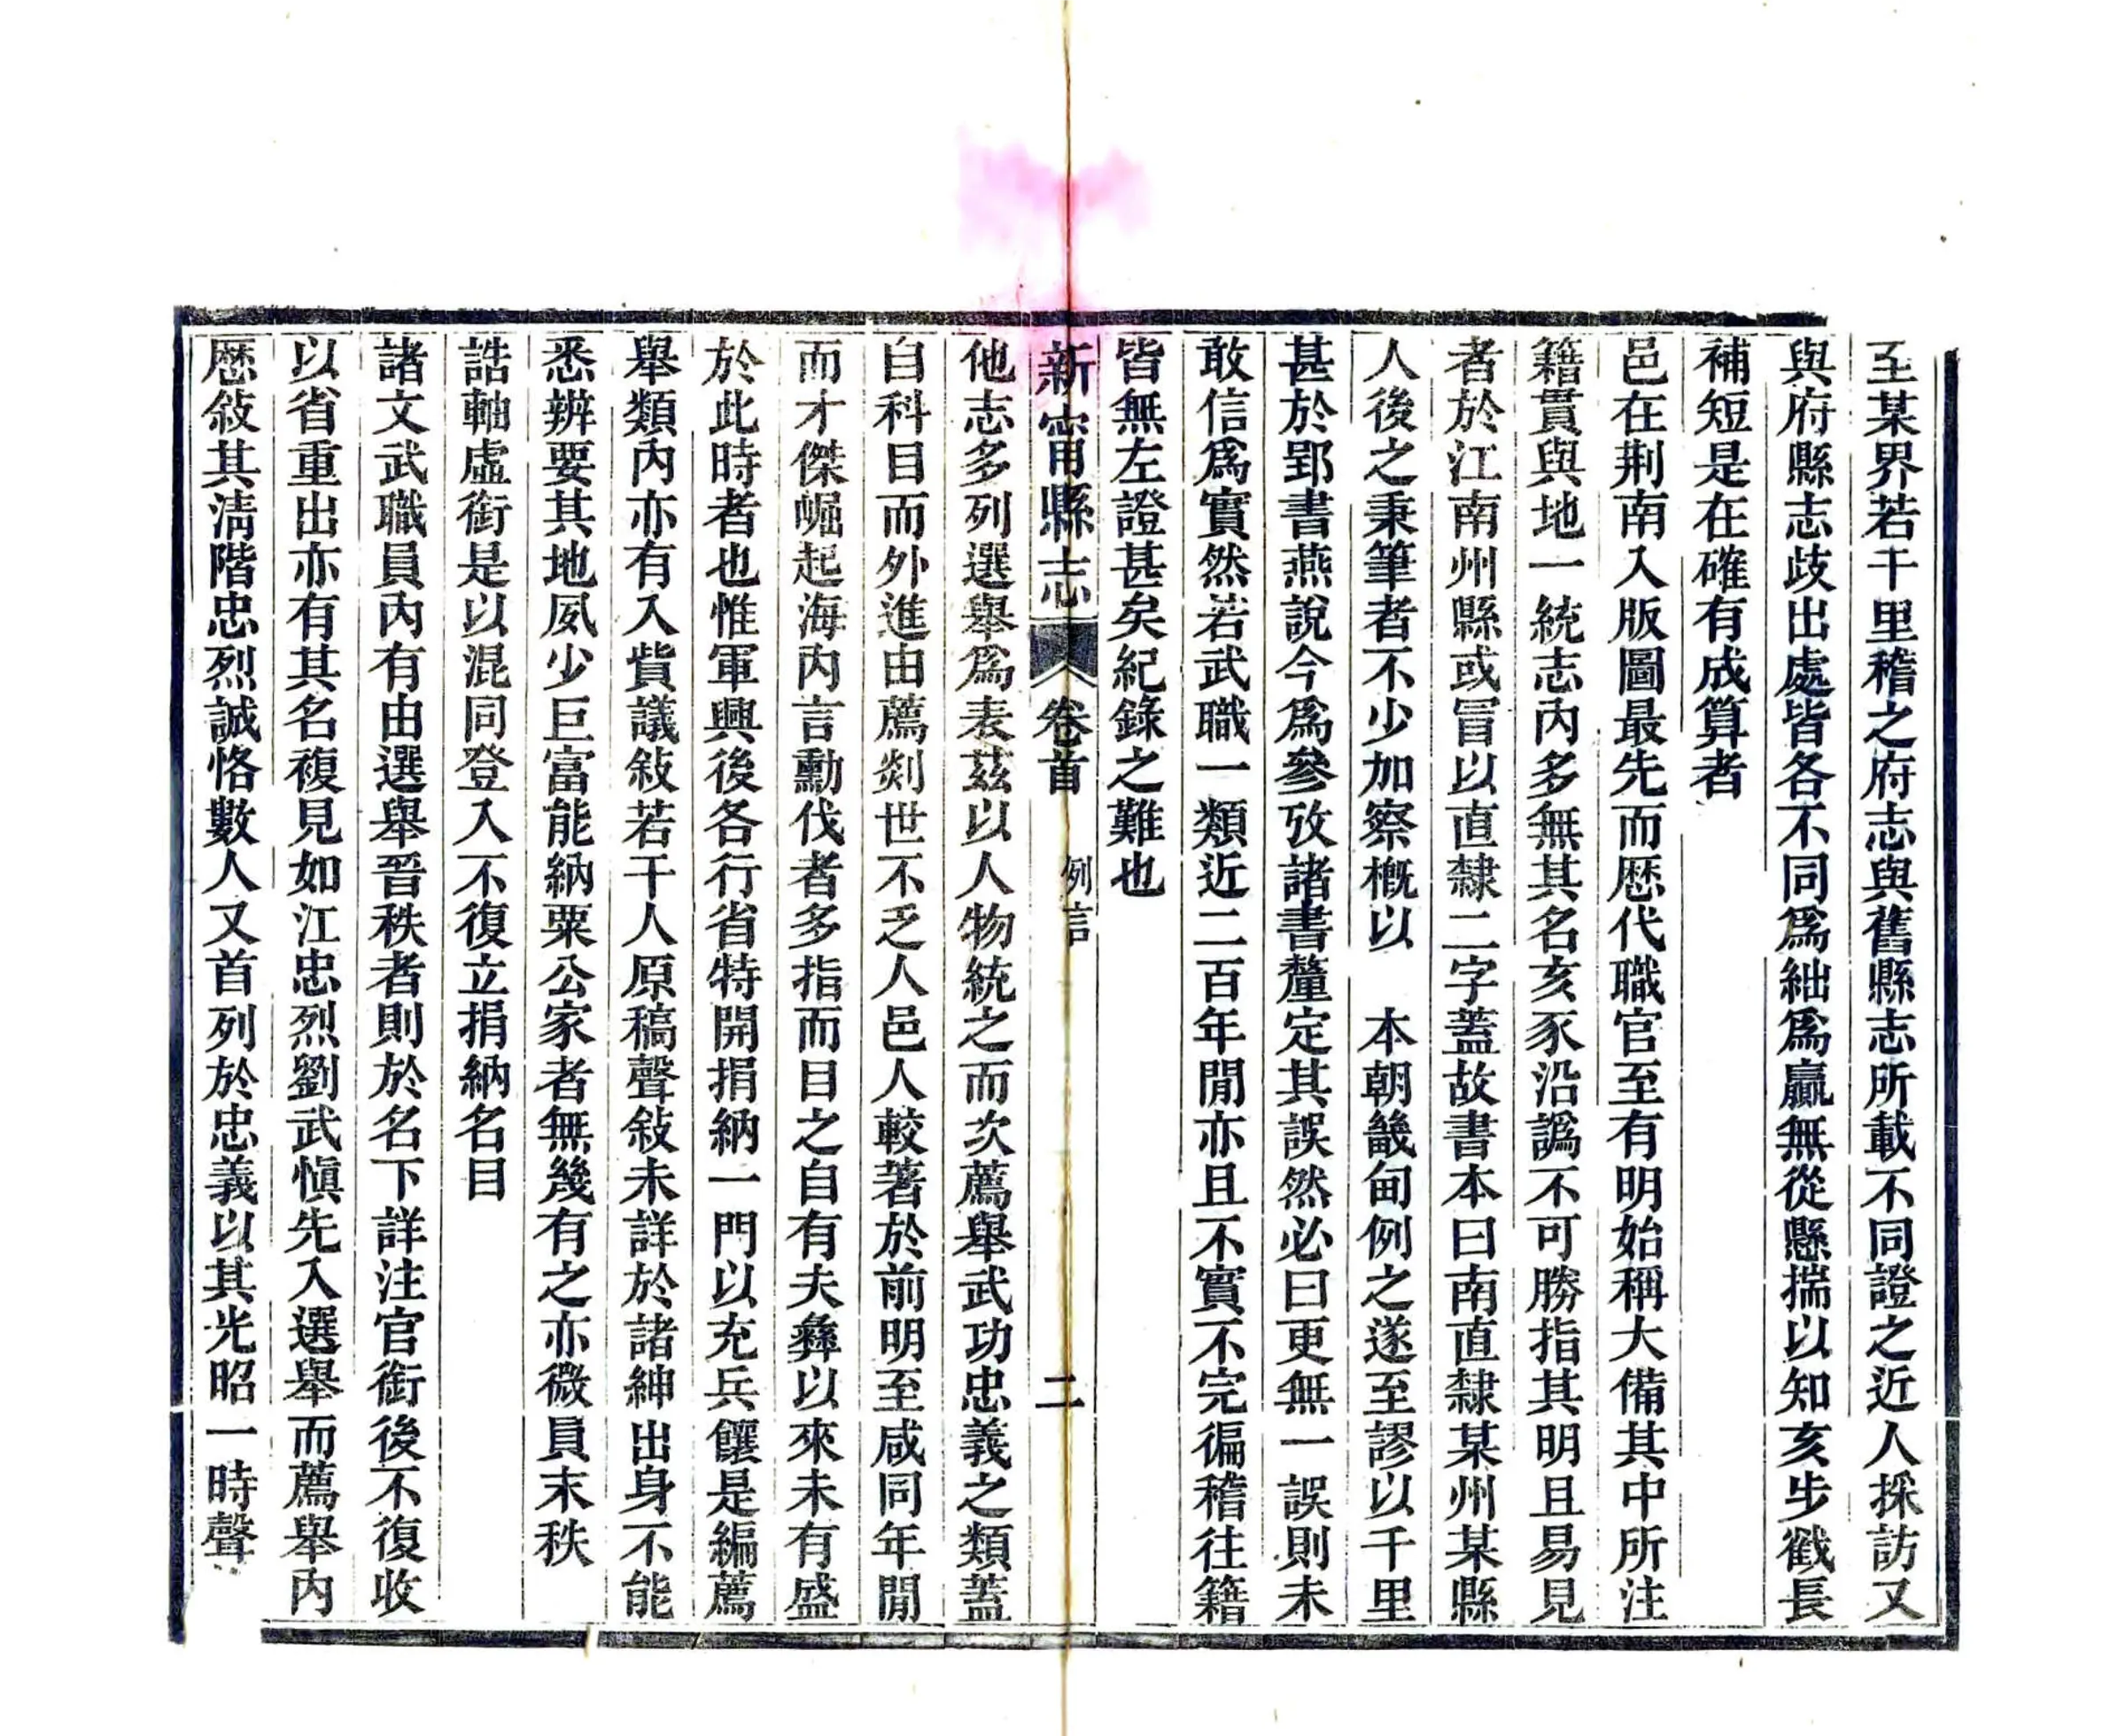 至某界若干里稽之府志與舊縣志所載不同證之近人採訪又
與府縣志歧出處皆各不同爲絀爲贏無從懸揣以知亥步戳長
補短是在確有成算者
邑在荆南入版圖最先而歷代職官至有明始稱大備其中所注
籍貫與地一統志內多無其名亥豕沿譌不可勝指其明且易見
者於江南州縣或冒以直隸二字蓋故書本曰南直隸某州某縣
人後之秉筆者不少加察槪以　本朝畿甸例之遂至謬以千里
甚於郢書燕說今爲參攷諸書釐定其誤然必曰更無一誤則未
敢信爲實然若武職一類近二百年閒亦且不實不完徧稽往籍
皆無左證甚矣紀錄之難也
新甯縣志　卷首　例言　二
他志多列選舉爲表茲以人物統之而次薦舉武功忠義之類蓋
自科目而外進由薦剡世不乏人邑人較著於前明至咸同年閒
而才傑崛起海內言勳伐者多指而目之自有夫彝以來未有盛
於此時者也惟軍興後各行省特開捐納一門以充兵饟是編薦
舉類內亦有入貲議敍若干人原稿聲敍未詳於諸紳出身不能
悉辨要其地夙少巨富能納粟公家者無幾有之亦微員末秩
誥軸虛銜是以混同登入不復立捐納名目
諸文武職員內有由選舉晉秩者則於名下詳注官銜後不復收
以省重出亦有其名複見如江忠烈劉武愼先入選舉而薦舉內
歷敍其淸階忠烈誠恪數人又首列於忠義以其光昭一時聲